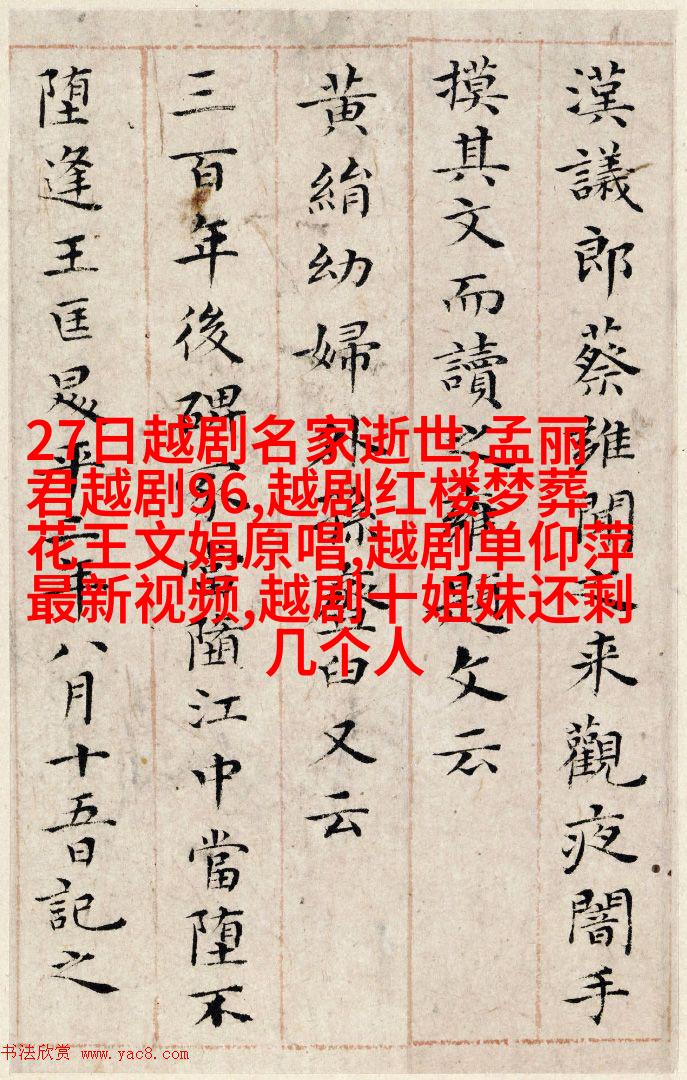 漢議郎蔡雍聞之来觀夜闇手
摸其文而讀之雍題文云
黄絹幼婦外孫韲臼又云
三百年後碑冢當墮江中當墮不
墮逢王匡昇平二年八月十五日記之
27日越剧名家逝世,孟丽
君越剧96,越剧红楼梦葬
花王文娟原唱,越剧单仰萍
最新视频,越剧十姐妹还剩
几个人
书法欣赏 www.yac8.com